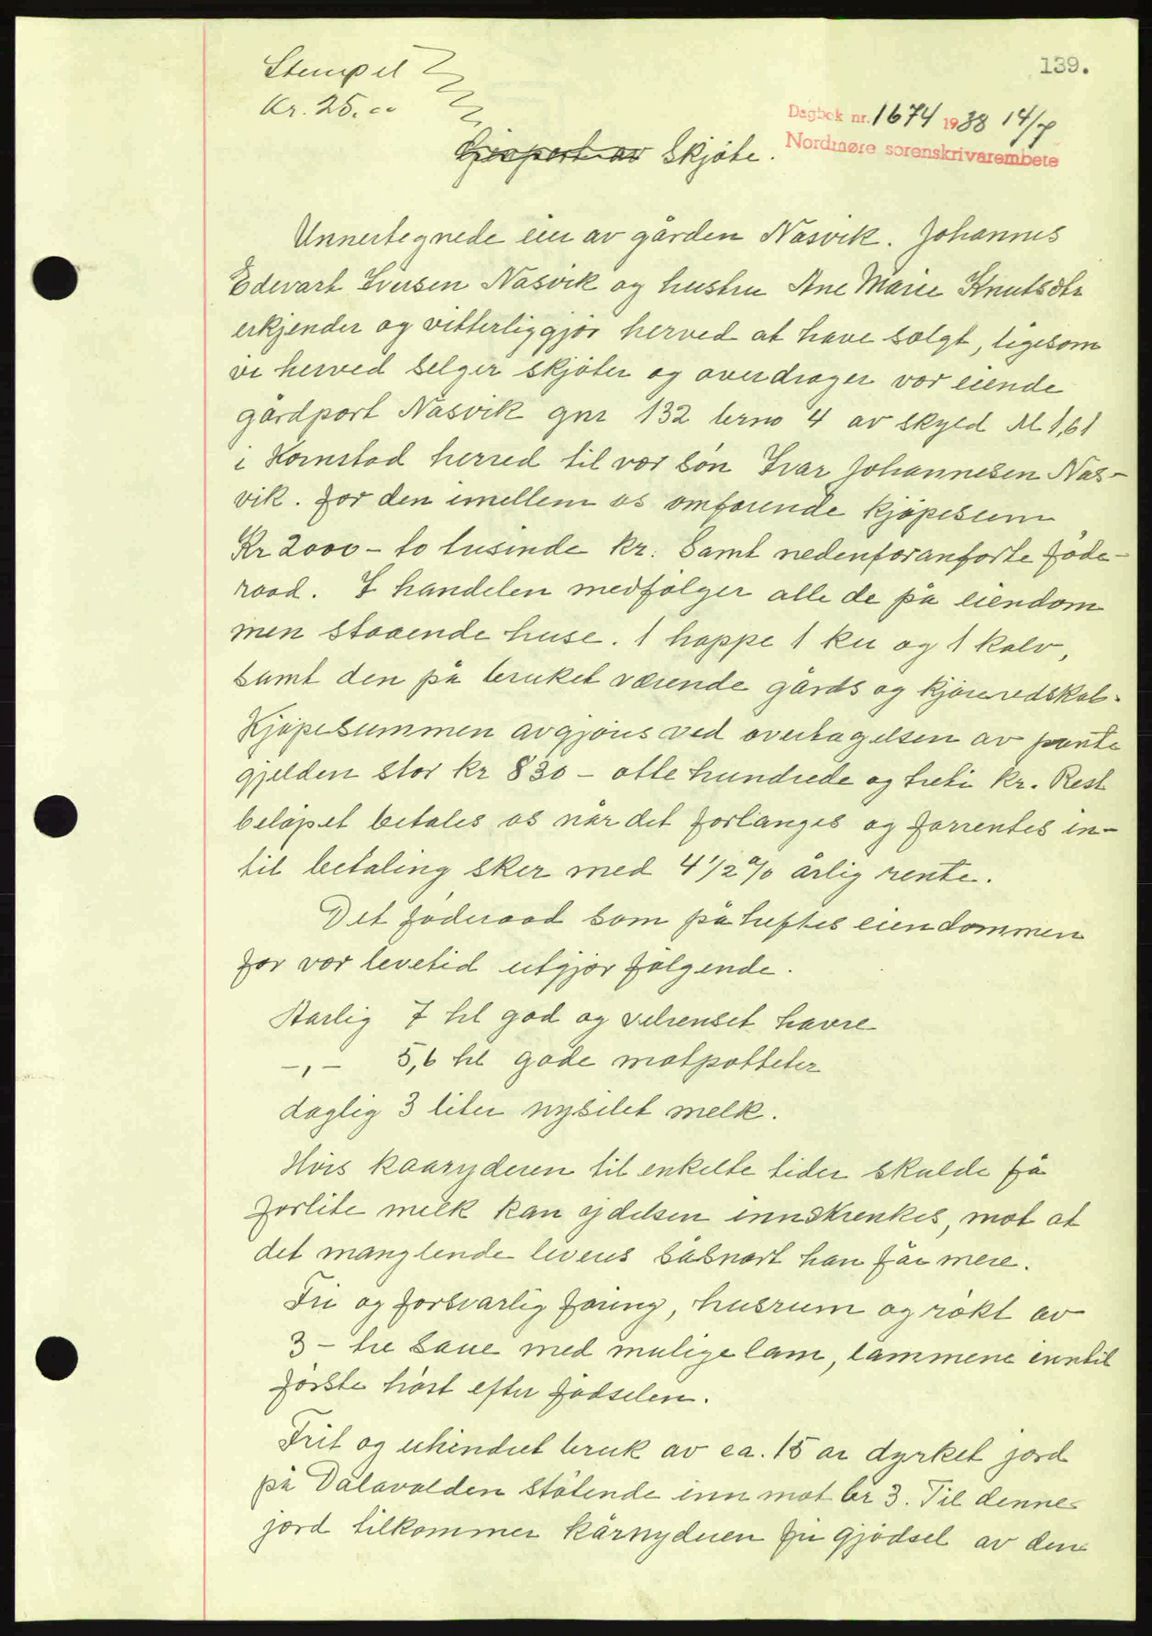 139.
Stempel
Kr. 25.00
Dagbok nr. 1674 1938 14/7
Nordmøre sorenskrivarembete
Gjenpart av Skjøte.
Unnertegnede eier av gården Näsvik. Johannes
Edevart Iversen Näsvik og hustru Ane Marie Knutsdtr
erkjender og vitterliggjør herved at have solgt, ligesom
vi herved selger skjøter og overdrager vor eiende
gårdpart Näsvik gnr 132 brno 4 av skyld M 1,61
i Kornstad herred til vor søn Ivar Johannesen Näs-
vik. for den imellem os omforende kjøpesum
Kr 2000 - to tusinde kr. Samt nedenforanførte føde-
raad. I handelen medfølger alle de på eiendom
men staaende huse. 1 hoppe 1 ku og 1 kalv,
samt den på bruket værende gårds og kjøreredskab.
Kjøpesummen avgjøres ved overtagelsen av pante
gjelden stor kr 830 - otte hundrede og treti kr. Rest
beløpet betales os når det forlanges og forrentes in-
til betaling sker med 4 1/2 % årlig rente.
Det føderaad som påheftes eiendommen
for vor levetid utgjør følgende.
Aarlig 7 hl god og velrenset havre
-,- 5,6 hl gode matpotteter
daglig 3 liter nysilet melk.
Hvis kaaryderen til enkelte tider skulde få
forlite melk kan ydelsen innskrenkes, mot at
det manglende leveres såsnart han får mere.
Fri og forsvarlig foring, husrum og røkt av
3 - tre saue med mulige lam, lammene inntil
første høst efter fødselen.
Frit og uhindret bruk av ca. 15 ar dyrket jord
på Dalavolden støtende inn mot br 3. Til denne
jord tilkommer kårnyderen fri gjødsel av den